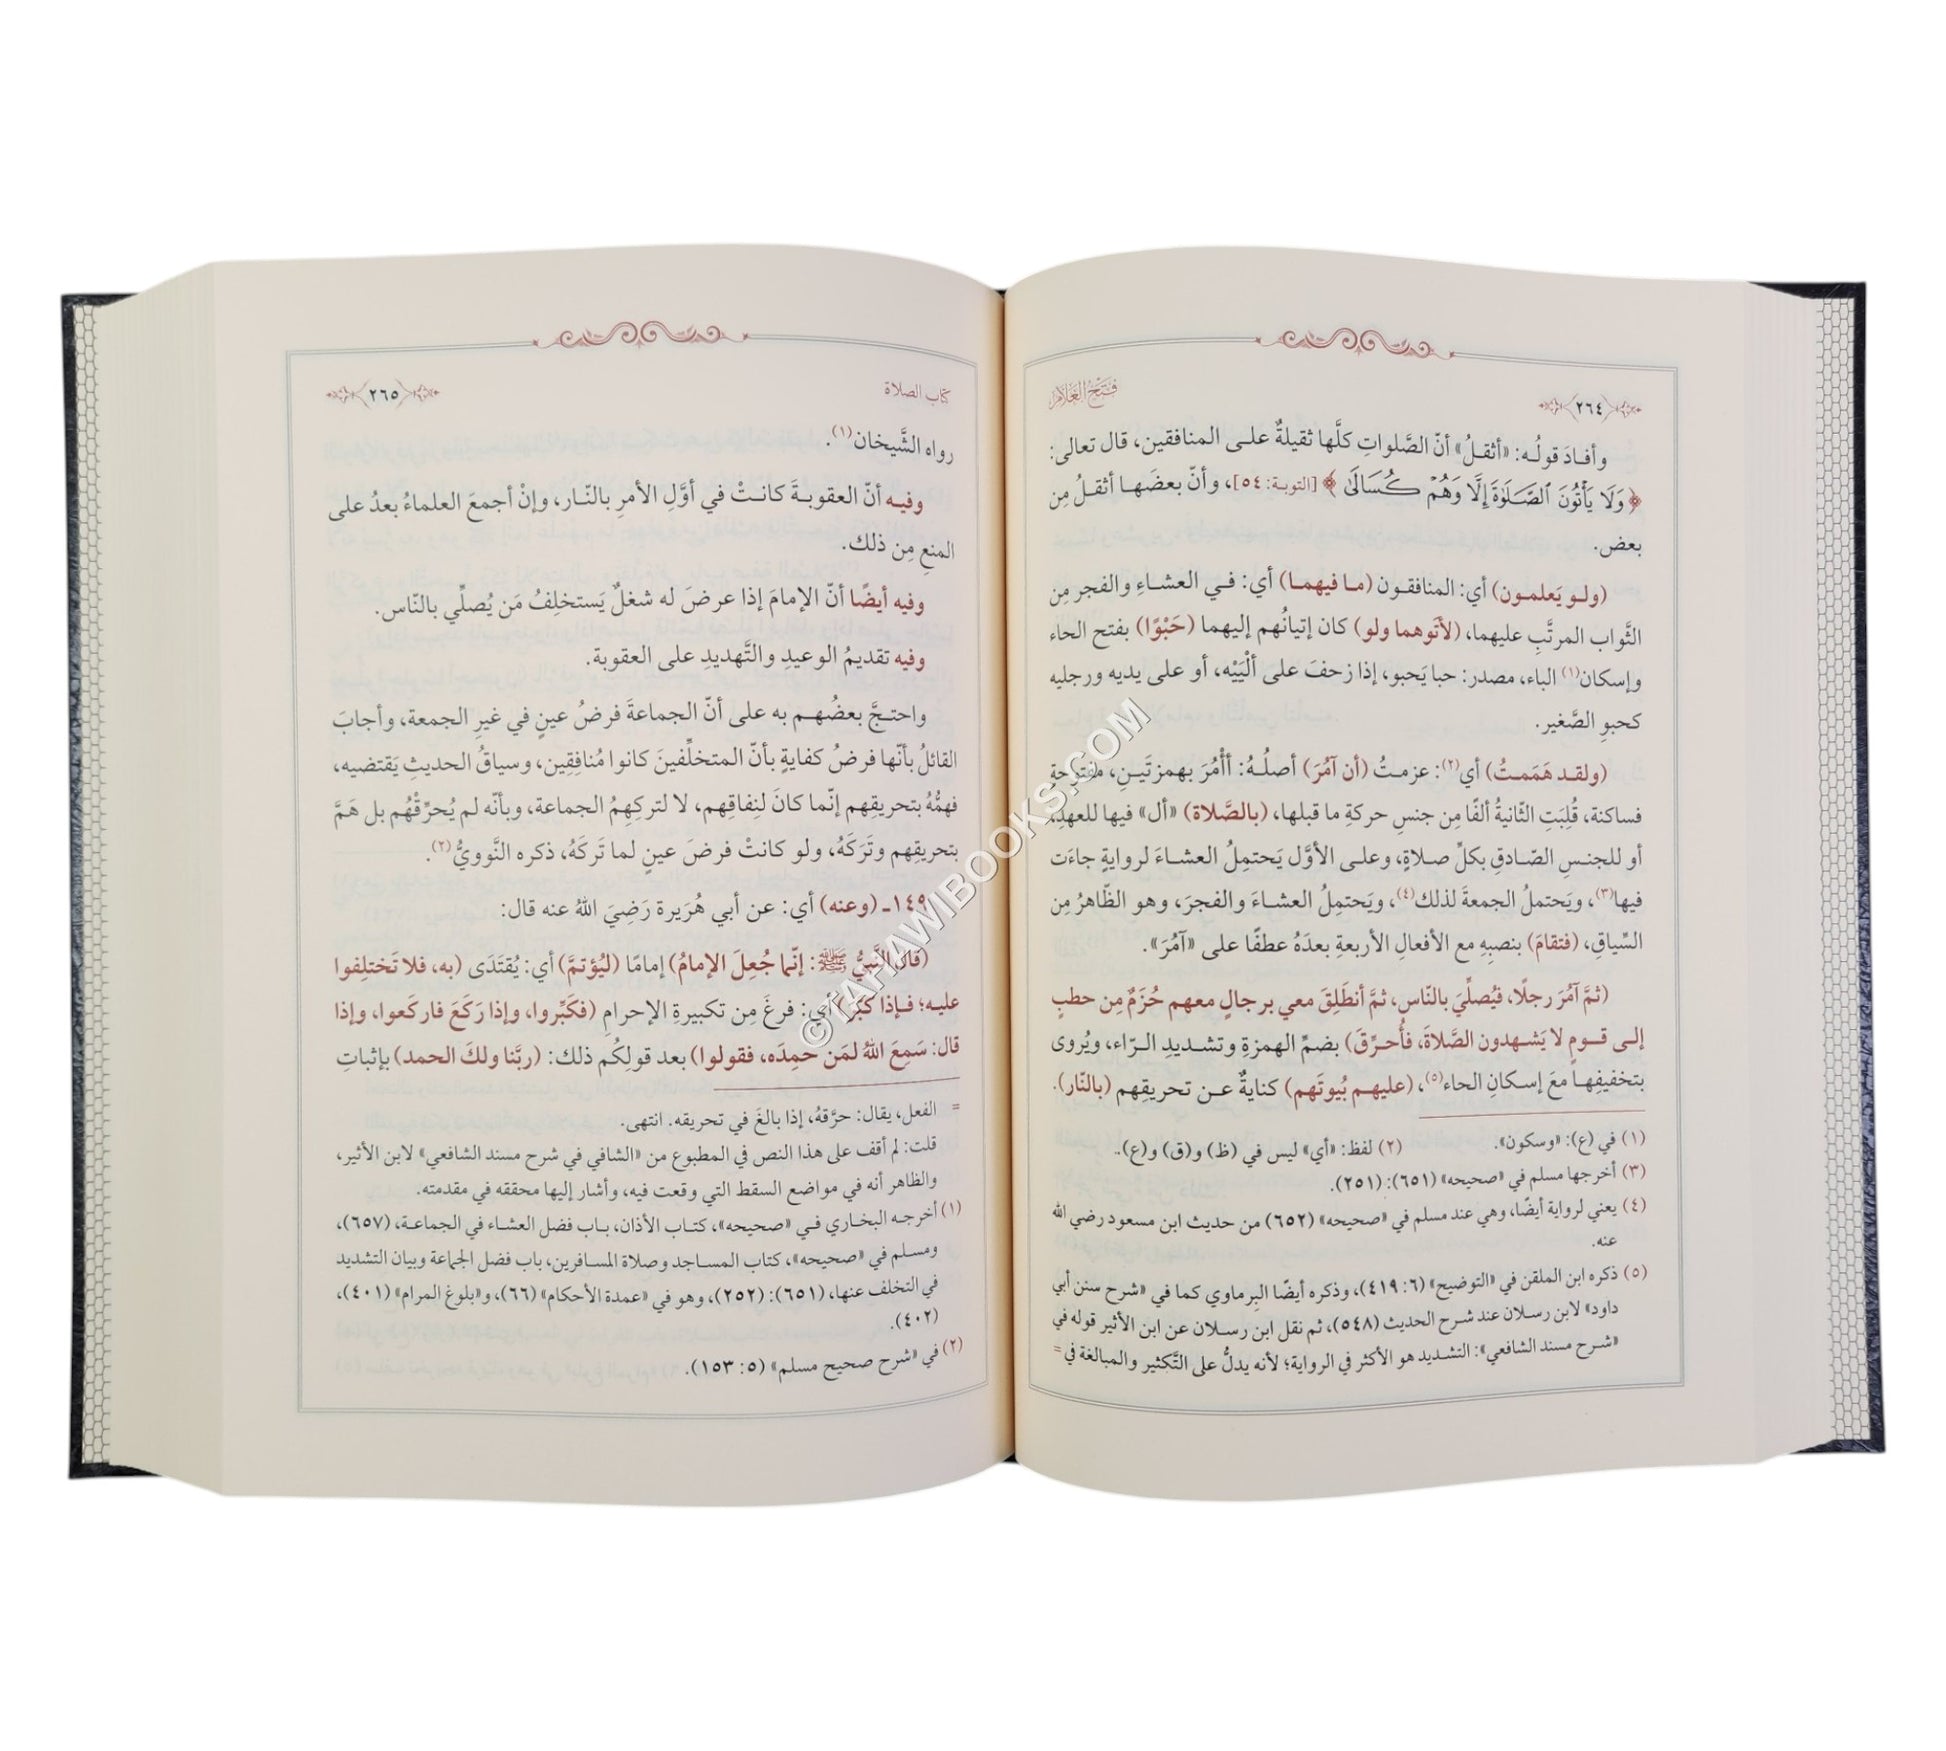 فتح العلام
٢٦٤
وأفادَ قولُه: «أثقلُ» أنّ الصَّلواتِ كلَّها ثقيلةٌ على المنافقين، قال تعالى:
﴿وَلَا يَأْتُونَ ٱلصَّلَوٰةَ إِلَّا وَهُمْ كُسَالَىٰ﴾ [التوبة: ٥٤]، وأنّ بعضَها أثقلُ مِن
بعض.
(ولو يَعلمون) أي: المنافقون (ما فيهما) أي: في العشاءِ والفجر مِن
الثَّواب المرتَّبِ عليهما، (لأَتَوهما ولو) كان إتيانُهم إليهما (حَبْوًا) بفتح الحاء
وإسكان(١) الباء، مصدر: حبا يَحبو، إذا زحفَ على ألْيَيْه، أو على يديه ورجليه
كحبوِ الصَّغير.
(ولقد هَمَمتُ) أي(٢): عزمتُ (أن آمُرَ) أصلُهُ: أأْمُرَ بهمزتَينِ، مفتوحةٍ
فساكنة، قُلِبَتِ الثّانيةُ ألفًا مِن جنسِ حركةِ ما قبلها، (بالصَّلاة) «أل» فيها للعهدِ،
أو للجنسِ الصّادقِ بكلِّ صلاةٍ، وعلى الأوَّل يَحتمِلُ العشاءَ لروايةٍ جاءَت
فيها(٣)، ويَحتملُ الجمعةَ لذلك(٤)، ويَحتمِلُ العشاءَ والفجرَ، وهو الظّاهرُ مِن
السِّياقِ، (فتقامَ) بنصبِهِ مع الأفعال الأربعةِ بعدَهُ عطفًا على «آمُرَ».
(ثمَّ آمُرَ رجلًا، فيُصلِّيَ بالنّاسِ، ثمَّ أنطَلِقَ معي برجالٍ معهم حُزَمٌ مِن حطبٍ
إلى قومٍ لا يَشهدون الصَّلاةَ، فأُحرِّقَ) بضمِّ الهمزةِ وتشديدِ الرّاء، ويُروى
بتخفيفِها معَ إسكانِ الحاء(٥)، (عليهم بُيوتَهم) كنايةٌ عن تحريقِهم (بالنّار).
(١) في (ع): «وسكون». (٢) لفظ: «أي» ليس في (ظ) و(ق) و(ع).
(٣) أخرجها مسلم في «صحيحه» (٦٥١): (٢٥١).
(٤) يعني لرواية أيضًا، وهي عند مسلم في «صحيحه» (٦٥٢) من حديث ابن مسعود رضي الله
عنه.
(٥) ذكره ابن الملقن في «التوضيح» (٦: ٤١٩)، وذكره أيضًا البِرماوي كما في «شرح سنن أبي
داود» لابن رسلان عند شرح الحديث (٥٤٨)، ثم نقل ابن رسلان عن ابن الأثير قوله في
«شرح مسند الشافعي»: التشديد هو الأكثر في الرواية؛ لأنه يدلُّ على التَّكثير والمبالغة في =
كتاب الصلاة
٢٦٥
رواه الشَّيخان(١).
وفيه أنّ العقوبةَ كانتْ في أوَّلِ الأمرِ بالنّار، وإنْ أجمعَ العلماءُ بعدُ على
المنعِ مِن ذلك.
وفيه أيضًا أنّ الإمامَ إذا عرضَ له شغلٌ يَستخلِفُ مَن يُصلِّي بالنّاس.
وفيه تقديمُ الوعيدِ والتَّهديدِ على العقوبة.
واحتجَّ بعضُهم به على أنّ الجماعةَ فرضُ عينٍ في غيرِ الجمعة، وأجابَ
القائلُ بأنّها فرضُ كفايةٍ بأنّ المتخلِّفينَ كانوا مُنافِقِين، وسياقُ الحديثِ يَقتضيه،
فهمُّهُ بتحريقِهم إنّما كانَ لنِفاقِهم، لا لتركِهِمُ الجماعة، وبأنّه لم يُحرِّقْهُم بل هَمَّ
بتحريقِهم وتَرَكَهُ، ولو كانتْ فرضَ عينٍ لما تَركَهُ، ذكره النَّوويُّ(٢).
١٤٩ـ (وعنه) أي: عن أبي هُرَيرة رَضِيَ اللهُ عنه قال:
(قالَ النَّبيُّ ﷺ: إنّما جُعِلَ الإمامُ) إمامًا (ليُؤتمَّ) أي: يُقتَدَى (به، فلا تَختلِفوا
عليه؛ فإذا كبّرَ) أي: فرغَ مِن تكبيرةِ الإحرامِ (فكَبِّروا، وإذا رَكَعَ فاركَعوا، وإذا
قال: سَمِعَ اللهُ لمَن حمِدَه، فقولوا) بعد قولِكُم ذلك: (ربَّنا ولكَ الحمد) بإثباتِ
= الفعل، يقال: حرَّقهُ، إذا بالغَ في تحريقه. انتهى.
قلت: لم أقف على هذا النص في المطبوع من «الشافي في شرح مسند الشافعي» لابن الأثير،
والظاهر أنه في مواضع السقط التي وقعت فيه، وأشار إليها محققه في مقدمته.
(١) أخرجه البخاري في «صحيحه»، كتاب الأذان، باب فضل العشاء في الجماعة، (٦٥٧)،
ومسلم في «صحيحه»، كتاب المساجد وصلاة المسافرين، باب فضل الجماعة وبيان التشديد
في التخلف عنها، (٦٥١): (٢٥٢)، وهو في «عمدة الأحكام» (٦٦)، و«بلوغ المرام» (٤٠١)،
(٤٠٢).
(٢) في «شرح صحيح مسلم» (٥: ١٥٣).
©TAHAWIBOOKS.COM